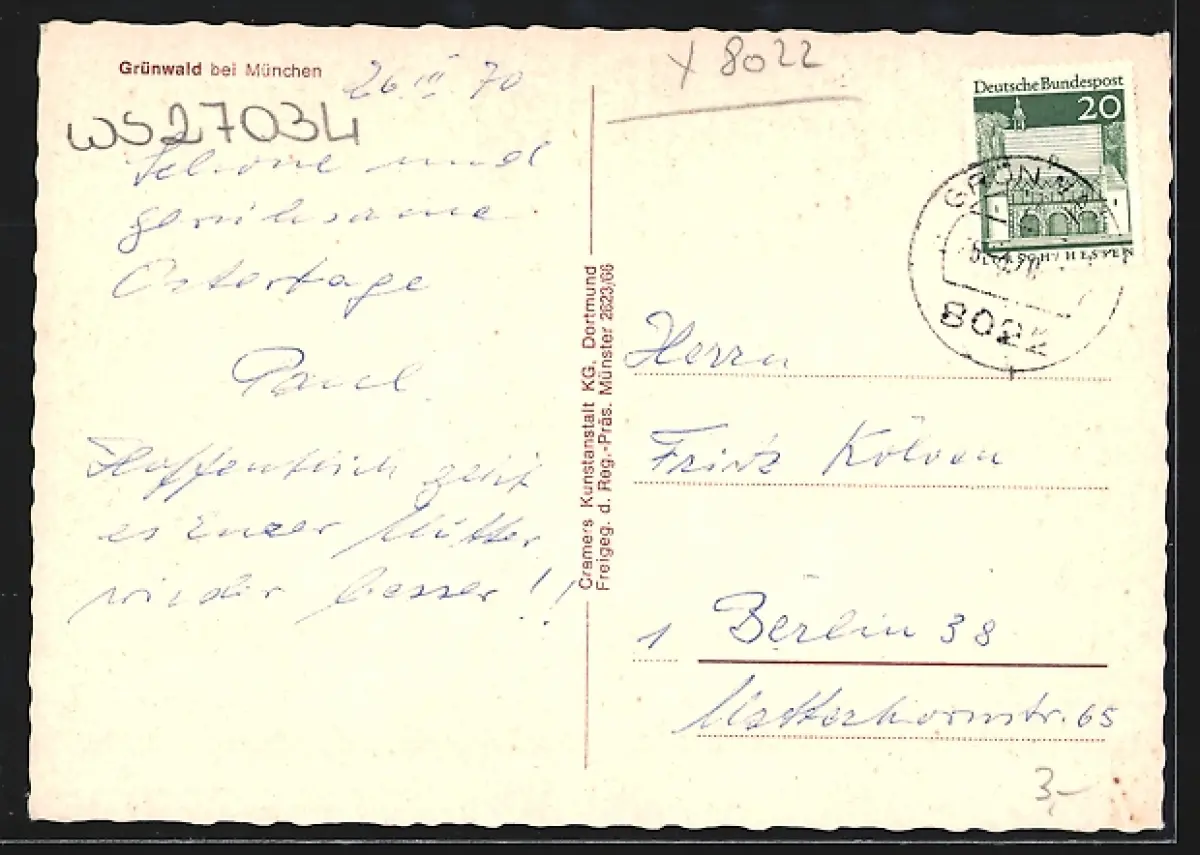 Grünwald bei München
26 III 70
WS27034
Schöne und
geruhsame
Ostertage
Paul
Hoffentlich geht
es Eurer Mutter
wieder besser!!
Cramers Kunstanstalt KG. Dortmund
Freigeg. d. Reg.-Präs. Münster 2623/66
X 8022
Deutsche Bundespost
20
LORSCH/HESSEN
8022
Herrn
Fritz
1 Berlin 38
Matterhornstr. 65
3,-